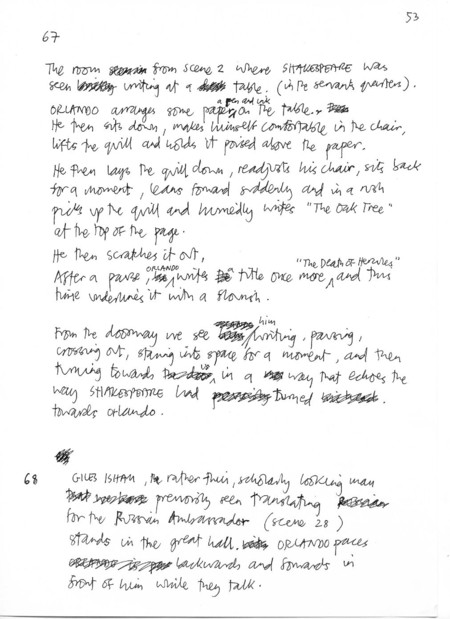 53
67
The room from scene 2 where SHAKESPEARE was
seen writing at a table. (in the servants quarters).
ORLANDO arranges some paper, a pen and ink on the table.
He then sits down, makes himself comfortable in the chair,
lifts the quill and holds it poised above the paper.
He then lays the quill down, readjusts his chair, sits back
for a moment, leans forward suddenly and in a rush
picks up the quill and hurriedly writes "The Oak Tree"
at the top of the page.
He then scratches it out,
After a pause, ORLANDO writes title once more, "The Death of Hercules" and this
time underlines it with a flourish.
From the doorway we see him writing, pausing,
crossing out, staring into space for a moment, and then
turning towards us, in a way that echoes the
way SHAKESPEARE had turned
towards Orlando.
68
GILES ISHAM, the rather thin, scholarly looking man
previously seen translating
for the Russian Ambassador (scene 28)
stands in the great hall. ORLANDO paces
backwards and forwards in
front of him while they talk.